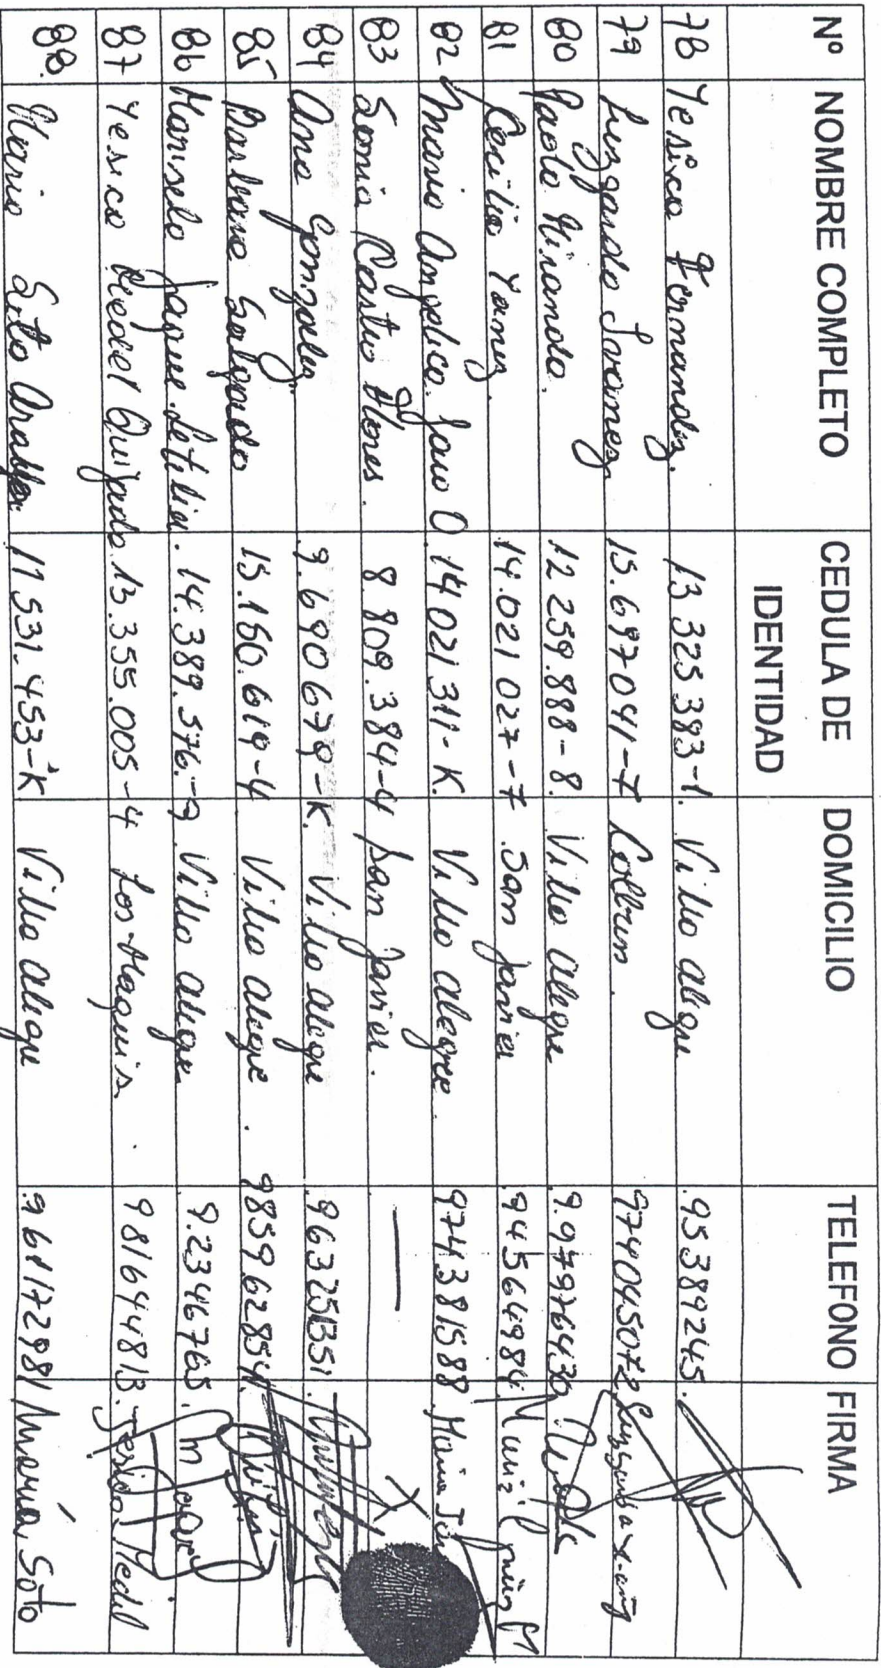 Nº NOMBRE COMPLETO CEDULA DE IDENTIDAD DOMICILIO TELEFONO FIRMA
78 Yesica Fernandez. 13 325 383-1. Villa alegre 95389245.
79 Luzgarda Ivanez 15.697041-7 Colbun. 974045072
80 Paola Miranda. 12 259.888-8. Villa alegre 9.97976430
81 Cecilia Yanez. 14.021 027-7 San Javier 94564984.
82 Maria Angelica Jaus O. 14 021 311-K. Villa alegre. 974381588 Maria
83 Sonia Castro Flores. 8 809.384-4 San Javier. —
84 Ana Gonzalez 9.690679-K. Villa alegre 963251351.
85 Barbara Salgado 15.160.619-4 Villa alegre. 985962854
86 Marisela Jaque Letelier. 14.389.576-9 Villa alegre 9.2346765.
87 Yesica Medel Quijada 13.355.005-4 Los Maquis. 981644813. Jesica Medel
88. Maria Soto 11 531.453-K Villa alegre 961172981 María Soto